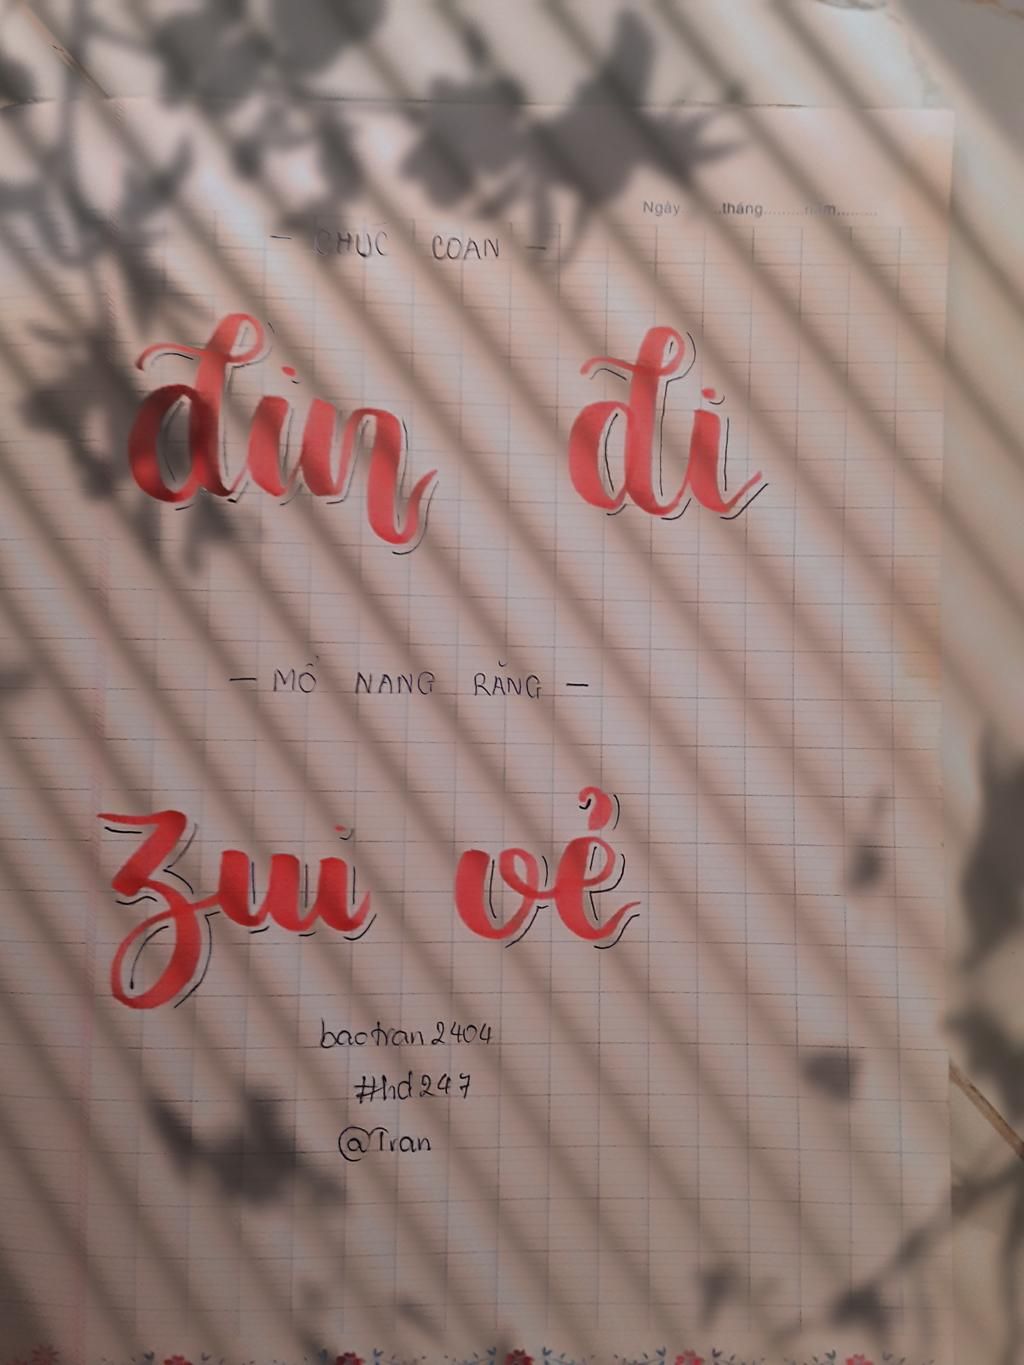 Ngày.......tháng.........năm.........
— CHUC COAN —
din di
— MÔ NANG RĂNG —
zui vẻ
baotran2404
#hd247
@Tran